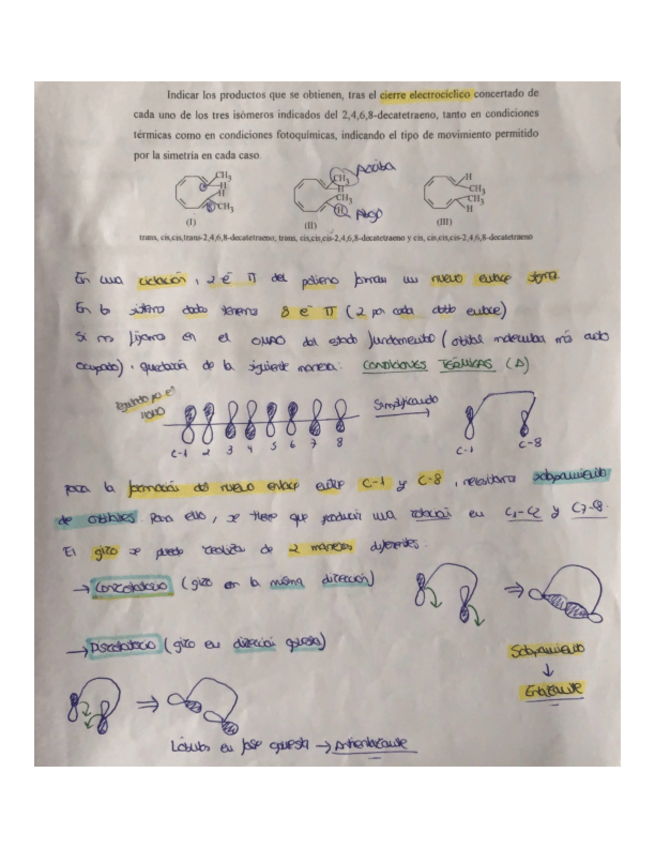 Indicar los productos que se obtienen, tras el cierre electrocíclico concertado de
cada uno de los tres isómeros indicados del 2,4,6,8-decatetraeno, tanto en condiciones
térmicas como en condiciones fotoquímicas, indicando el tipo de movimiento permitido
por la simetría en cada caso.
CH3 H H CH3
CH3 H CH3 H
H CH3 CH3 H
Arriba
Abajo
(I) (II) (III)
trans, cis,cis,trans-2,4,6,8-decatetraeno; trans, cis,cis,cis-2,4,6,8-decatetraeno y cis, cis,cis,cis-2,4,6,8-decatetraeno
En una ciclación, 2 e⁻ π del polieno forman un nuevo enlace sigma
En el sistema dado tenemos 8 e⁻ π (2 por cada doble enlace)
Si nos fijamos en el OMAO del estado fundamental (orbital molecular más alto
ocupado), quedaría de la siguiente manera: CONDICIONES TÉRMICAS (Δ)
por el
HOMO
Simplificando
C-1 2 3 4 5 6 7 8
C-1 C-8
para la formación del nuevo enlace entre C-1 y C-8, necesitamos solapamiento
de orbitales. Para ello, se tiene que producir una rotación en C1-C2 y C7-C8.
El giro se puede realizar de 2 maneras diferentes:
→ Conrotatorio (giro en la misma dirección)
⇒
→ Disrotatorio (giro en dirección opuesta)
Solapamiento
↓
Enlazante
⇒
Lóbulos en fase opuesta → Antienlazante